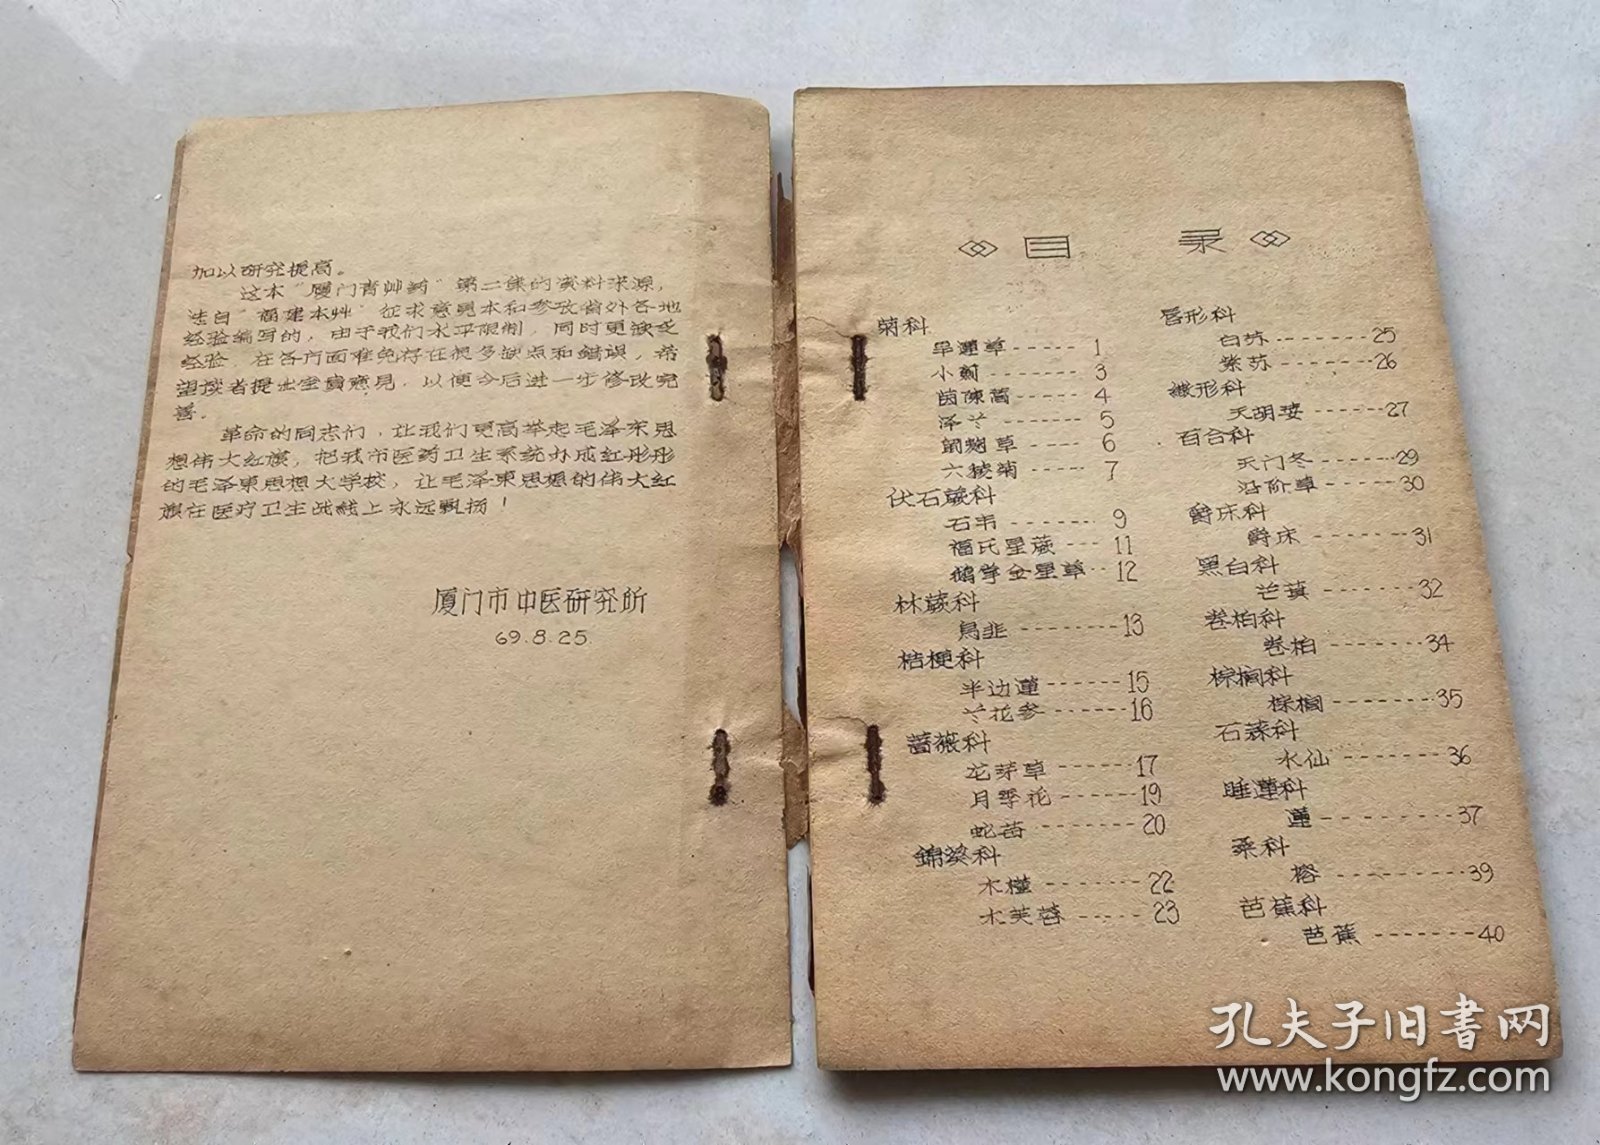 加以研究提高。
这本“厦门青艸药”第二集的资料来源,
法自“福建本艸”征求意见本和参攷省外各地
经验编写的,由于我们水平限制,同时更缺乏
经验,在各方面难免存在很多缺点和错误,希
望读者提出宝贵意见,以便今后进一步修改完
善。
革命的同志们,让我们更高举起毛泽东思
想伟大红旗,把我市医药卫生系统办成红彤彤
的毛泽東思想大学校,让毛泽東思想的伟大红
旗在医疗卫生战线上永远飘扬!
厦门市中医研究所
69.8.25.
目 录
菊科
旱蓮草------1
小薊------3
茵陳蒿-----4
泽兰------5
鼠麴草-----6
六稜菊-----7
伏石蕨科
石韦-------9
福氏星蕨---11
鵝掌金星草--12
林蕨科
烏韭-------13
桔梗科
半边蓮------15
兰花参------16
蔷薇科
龙芽草------17
月季花------19
蛇莓-------20
錦葵科
木槿-------22
木芙蓉-----23
唇形科
白苏-------25
紫苏-------26
繖形科
天胡荽------27
百合科
天门冬------29
沿阶草------30
爵床科
爵床-------31
黑白科
芒萁-------32
卷柏科
卷柏-------34
棕榈科
棕榈-------35
石蒜科
水仙-------36
睡蓮科
蓮--------37
桑科
榕--------39
芭蕉科
芭蕉-------40
孔夫子旧書网
www.kongfz.com